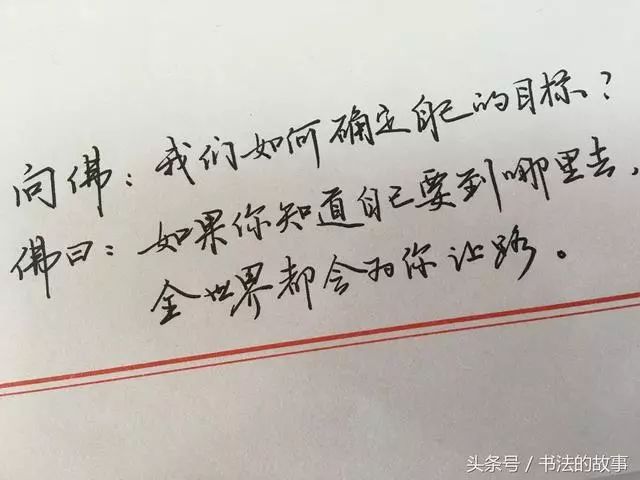 问佛：我们如何确定自己的目标？
佛曰：如果你知道自己要到哪里去，
全世界都会为你让路。
头条号／书法的故事